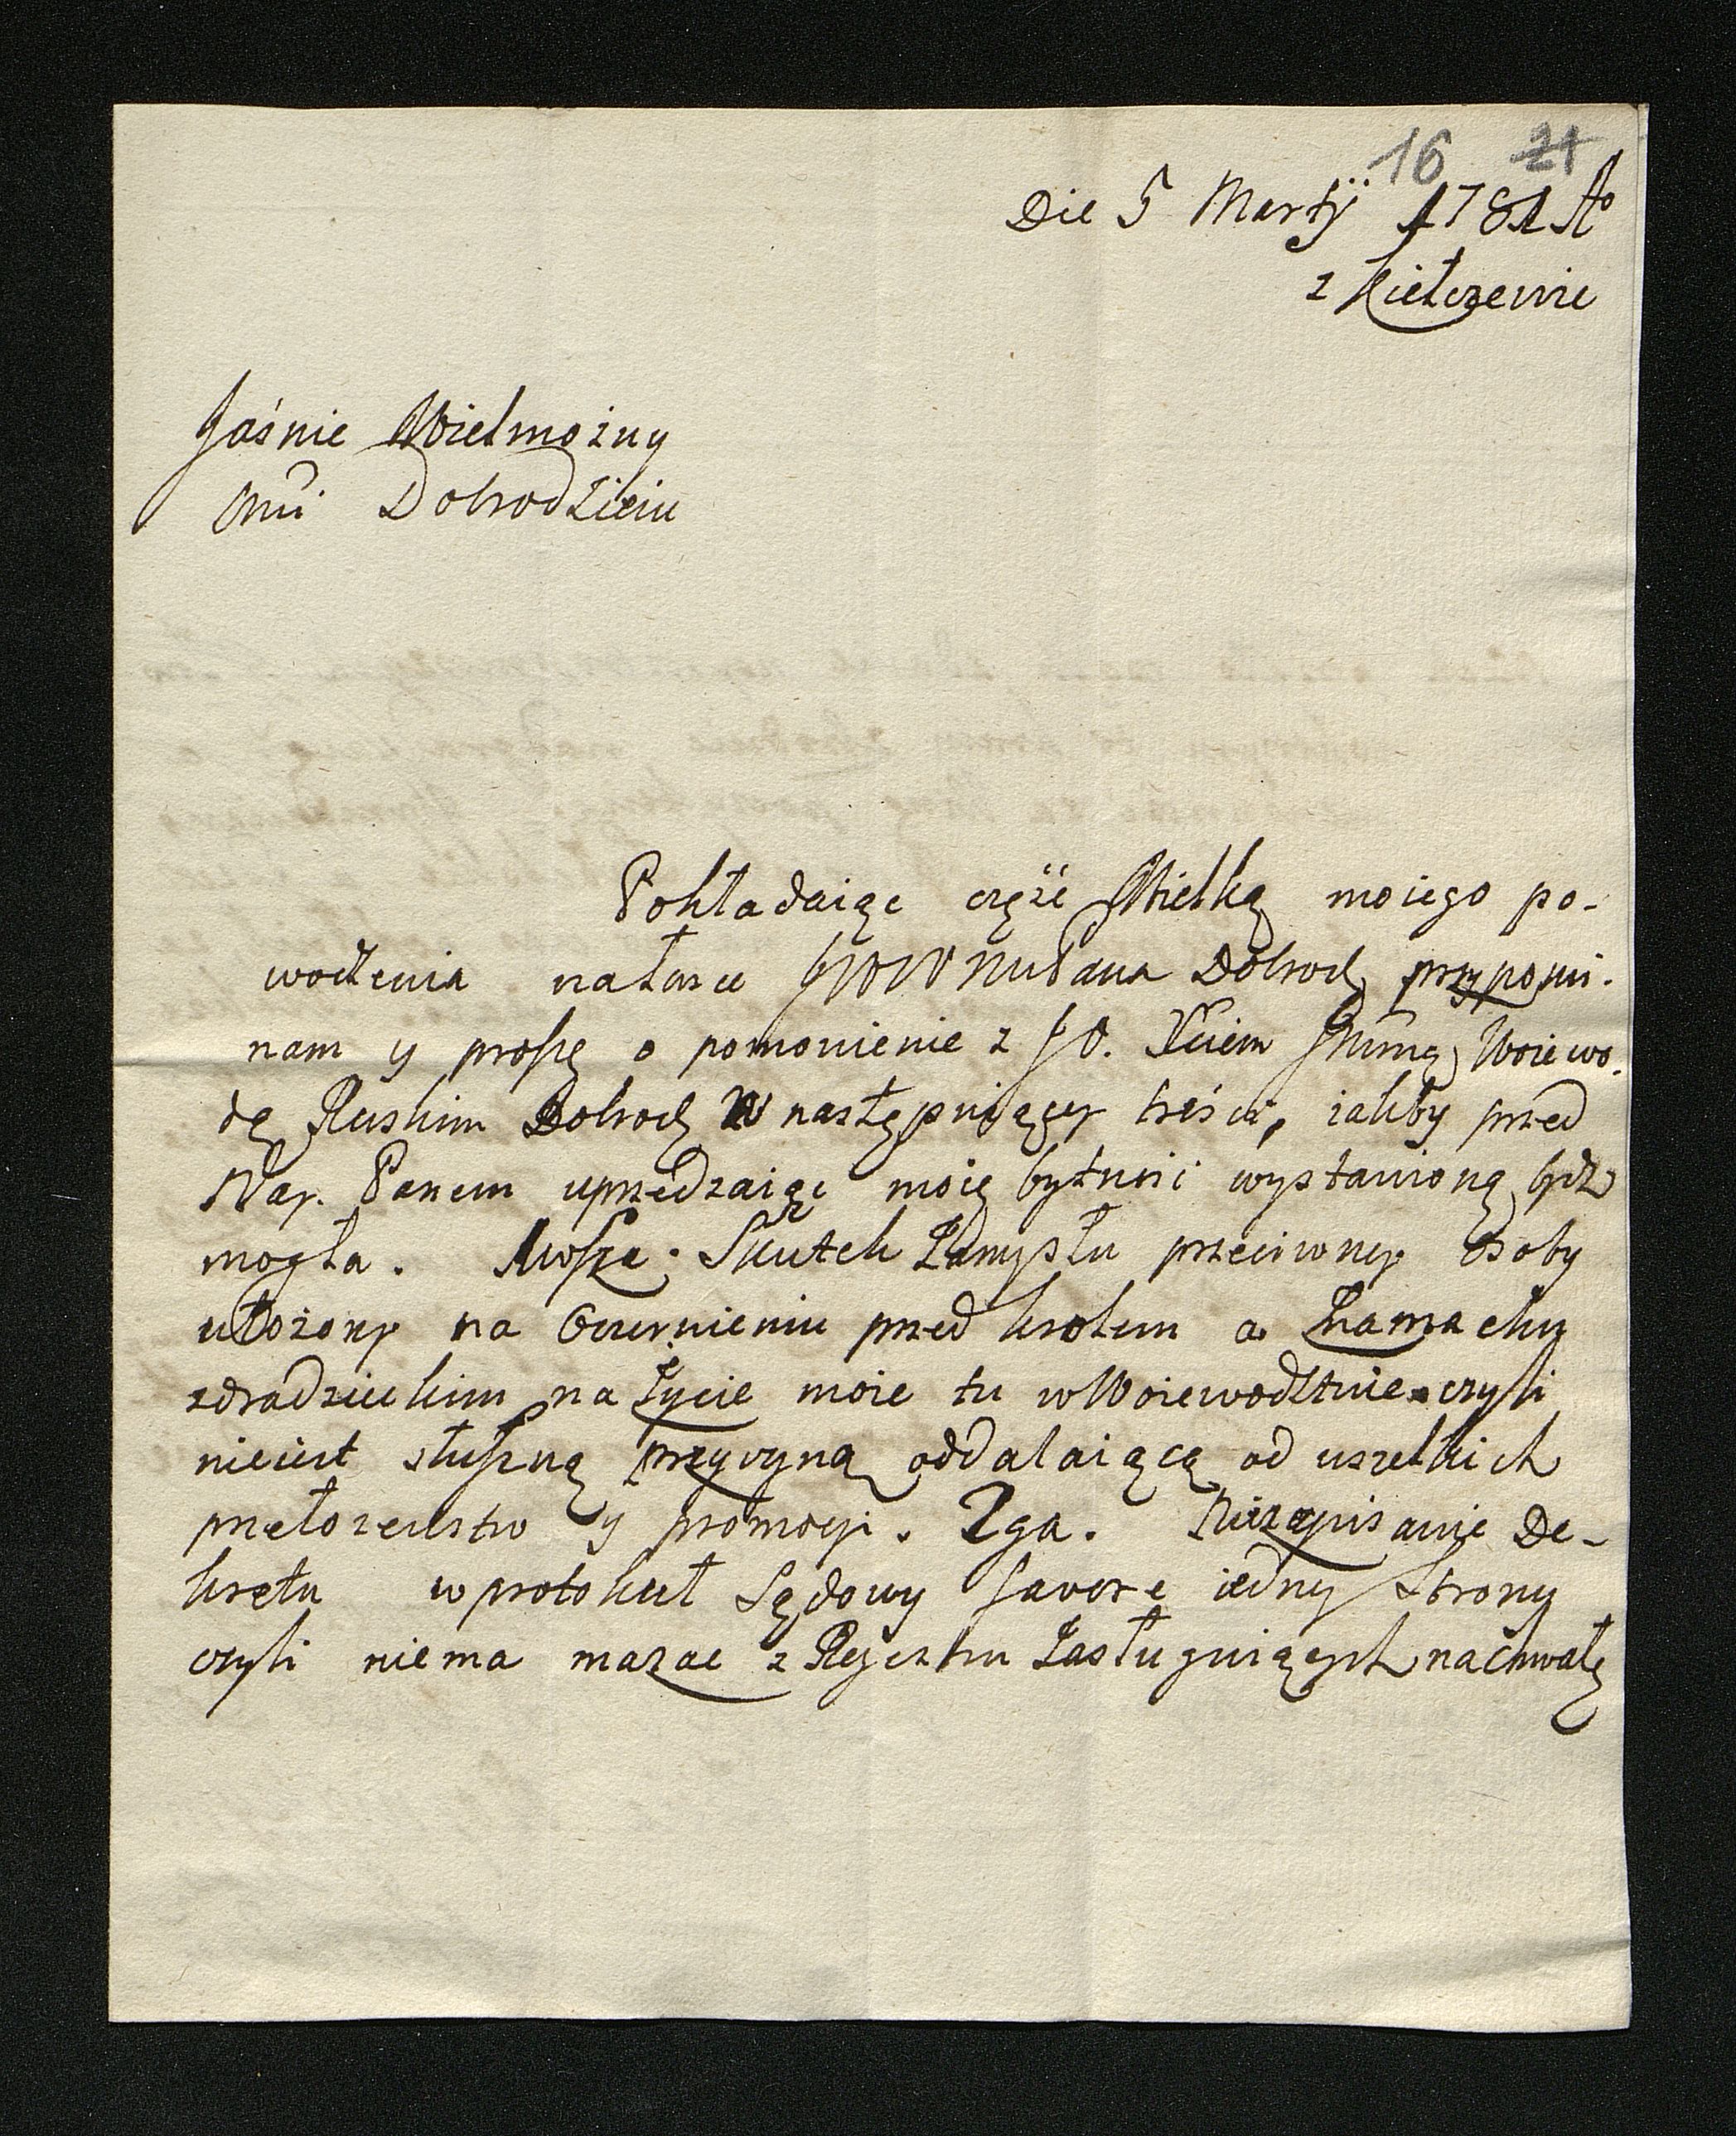 16 21
Die 5 Martÿ 1781 Ao
z Kiełczewie
Jaśnie Wielmożny
Mći Dobrodzieiu
Pokładaiąc częźć Wielką moiego po-
wodzenia nałasce JWW Mći Pana Dobrod przypomi-
nam y proszę o pomowienie z JO. Xciem Jmcią Woiewo-
dą Ruskim Dobrod w następuiącey treści, iakby przed
Nay. Panem uprzedzaiąc moię bytność wystawioną bydz
mogła. Skutek Zamysłu przeciwney Osoby
ułożony na Oczernieniu przed krolem a Zamachu
zdradzieckim na życie moie tu wWoiewodztwie czyli
nieiest słuszną przyczyną oddalaiącą od wszelkich
przełozenstw y promocyi. 2ga. Niezapisanie De-
kretu wprotokuł Sądowy favore iedney Strony
czyli niema mazac z Rejestru Zasługuiących nachwałę